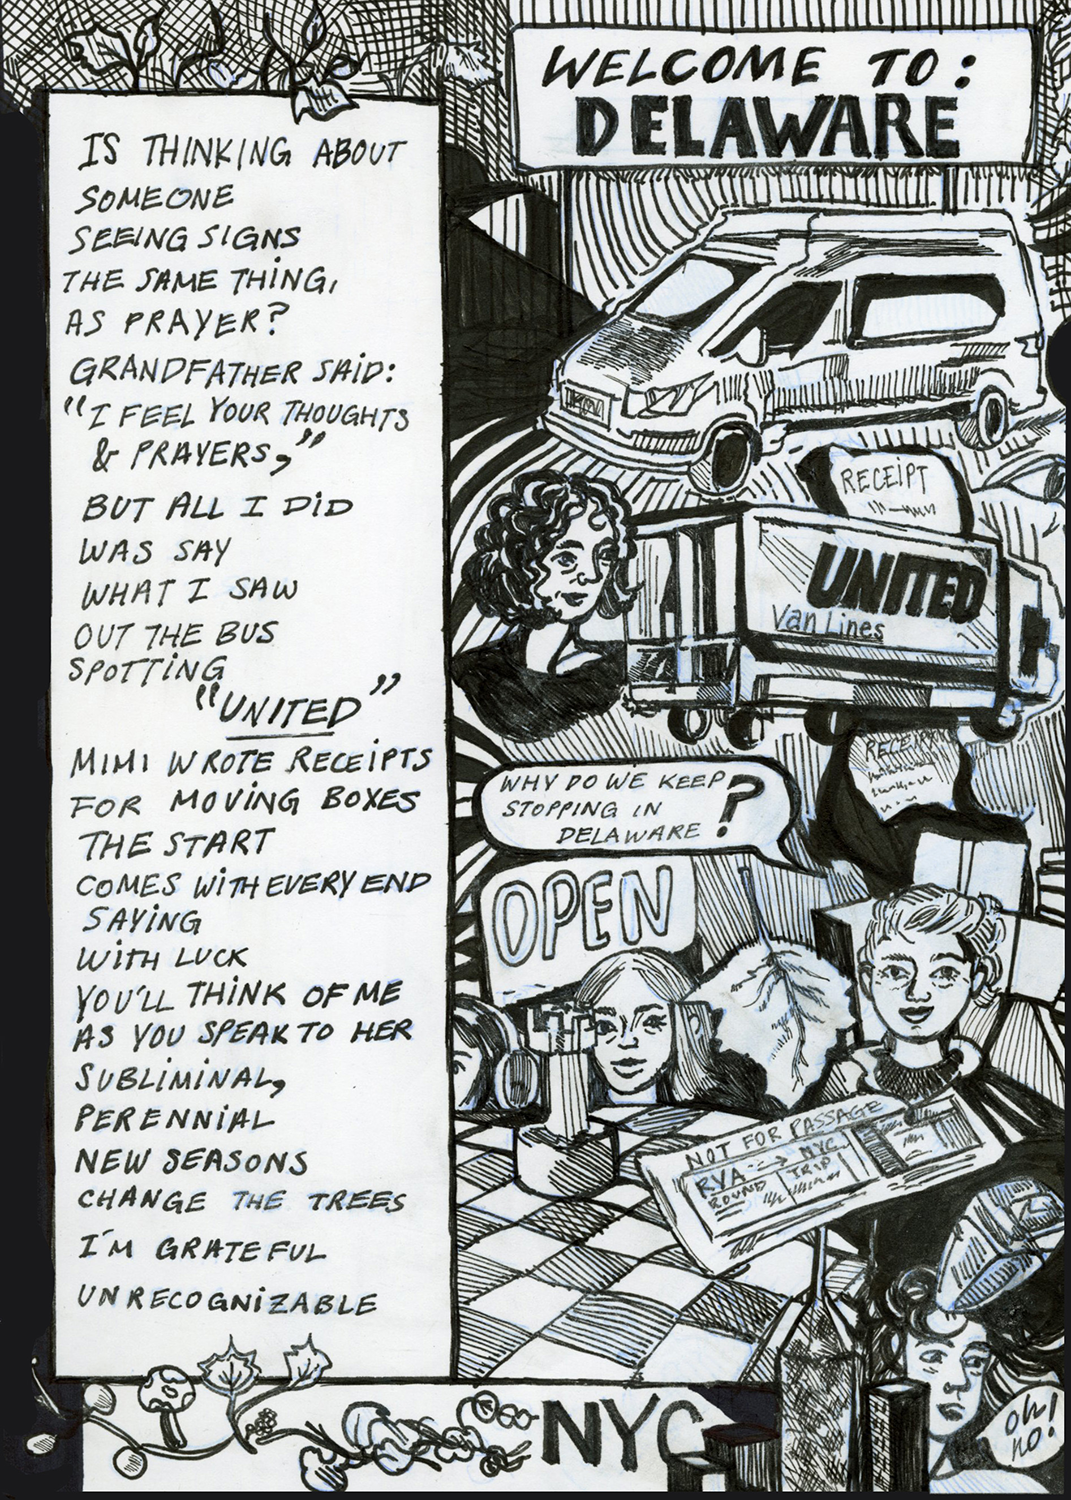 IS THINKING ABOUT
SOMEONE
SEEING SIGNS
THE SAME THING,
AS PRAYER?
GRANDFATHER SAID:
"I FEEL YOUR THOUGHTS
& PRAYERS,"
BUT ALL I DID
WAS SAY
WHAT I SAW
OUT THE BUS
SPOTTING
"UNITED"
MIMI WROTE RECEIPTS
FOR MOVING BOXES
THE START
COMES WITH EVERY END
SAYING
WITH LUCK
YOU'LL THINK OF ME
AS YOU SPEAK TO HER
SUBLIMINAL,
PERENNIAL
NEW SEASONS
CHANGE THE TREES
I'M GRATEFUL
UNRECOGNIZABLE
WELCOME TO:
DELAWARE
RECEIPT
UNITED
Van Lines
RECEIPT
WHY DO WE KEEP
STOPPING IN
DELAWARE?
OPEN
NOT FOR PASSAGE
RVA → NYC
ROUND TRIP
oh
no!
NYC